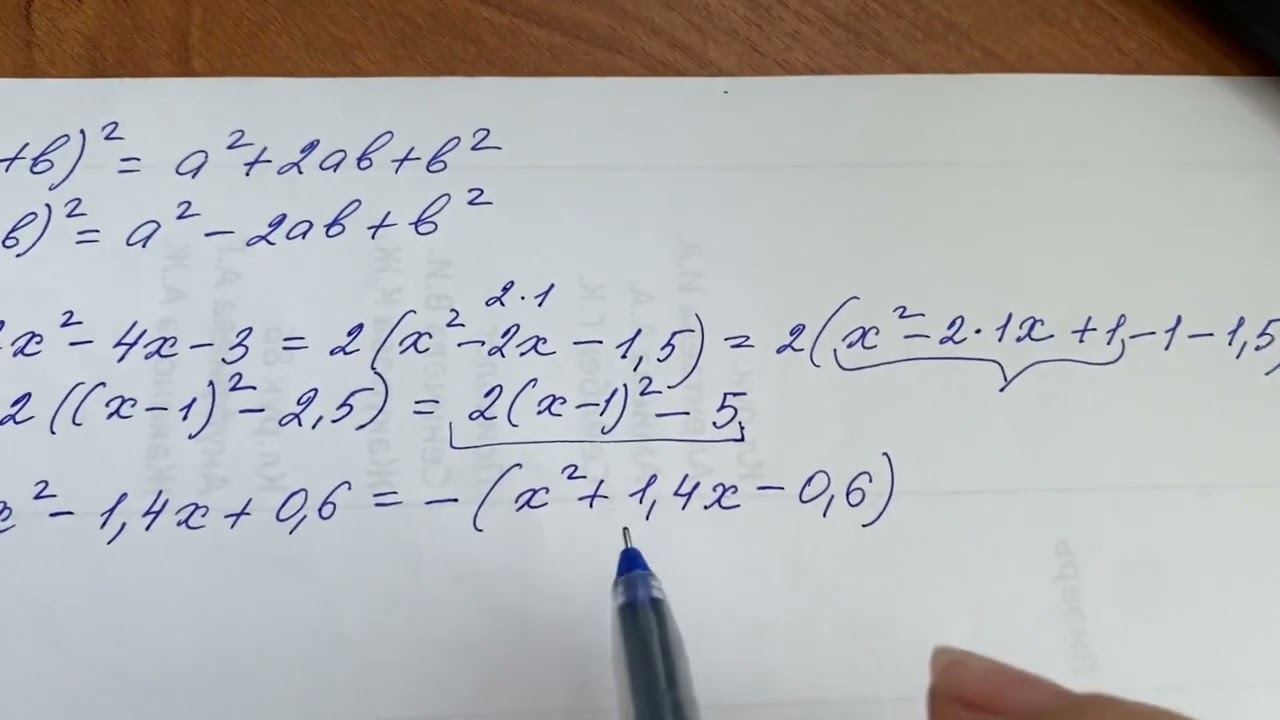 +в)² = a² + 2aв + в²
в)² = a² - 2aв + в²
2·1
x² - 4x - 3 = 2(x² - 2x - 1,5) = 2(x² - 2·1x + 1 - 1 - 1,5
2((x-1)² - 2,5) = 2(x-1)² - 5
x² - 1,4x + 0,6 = -(x² + 1,4x - 0,6)